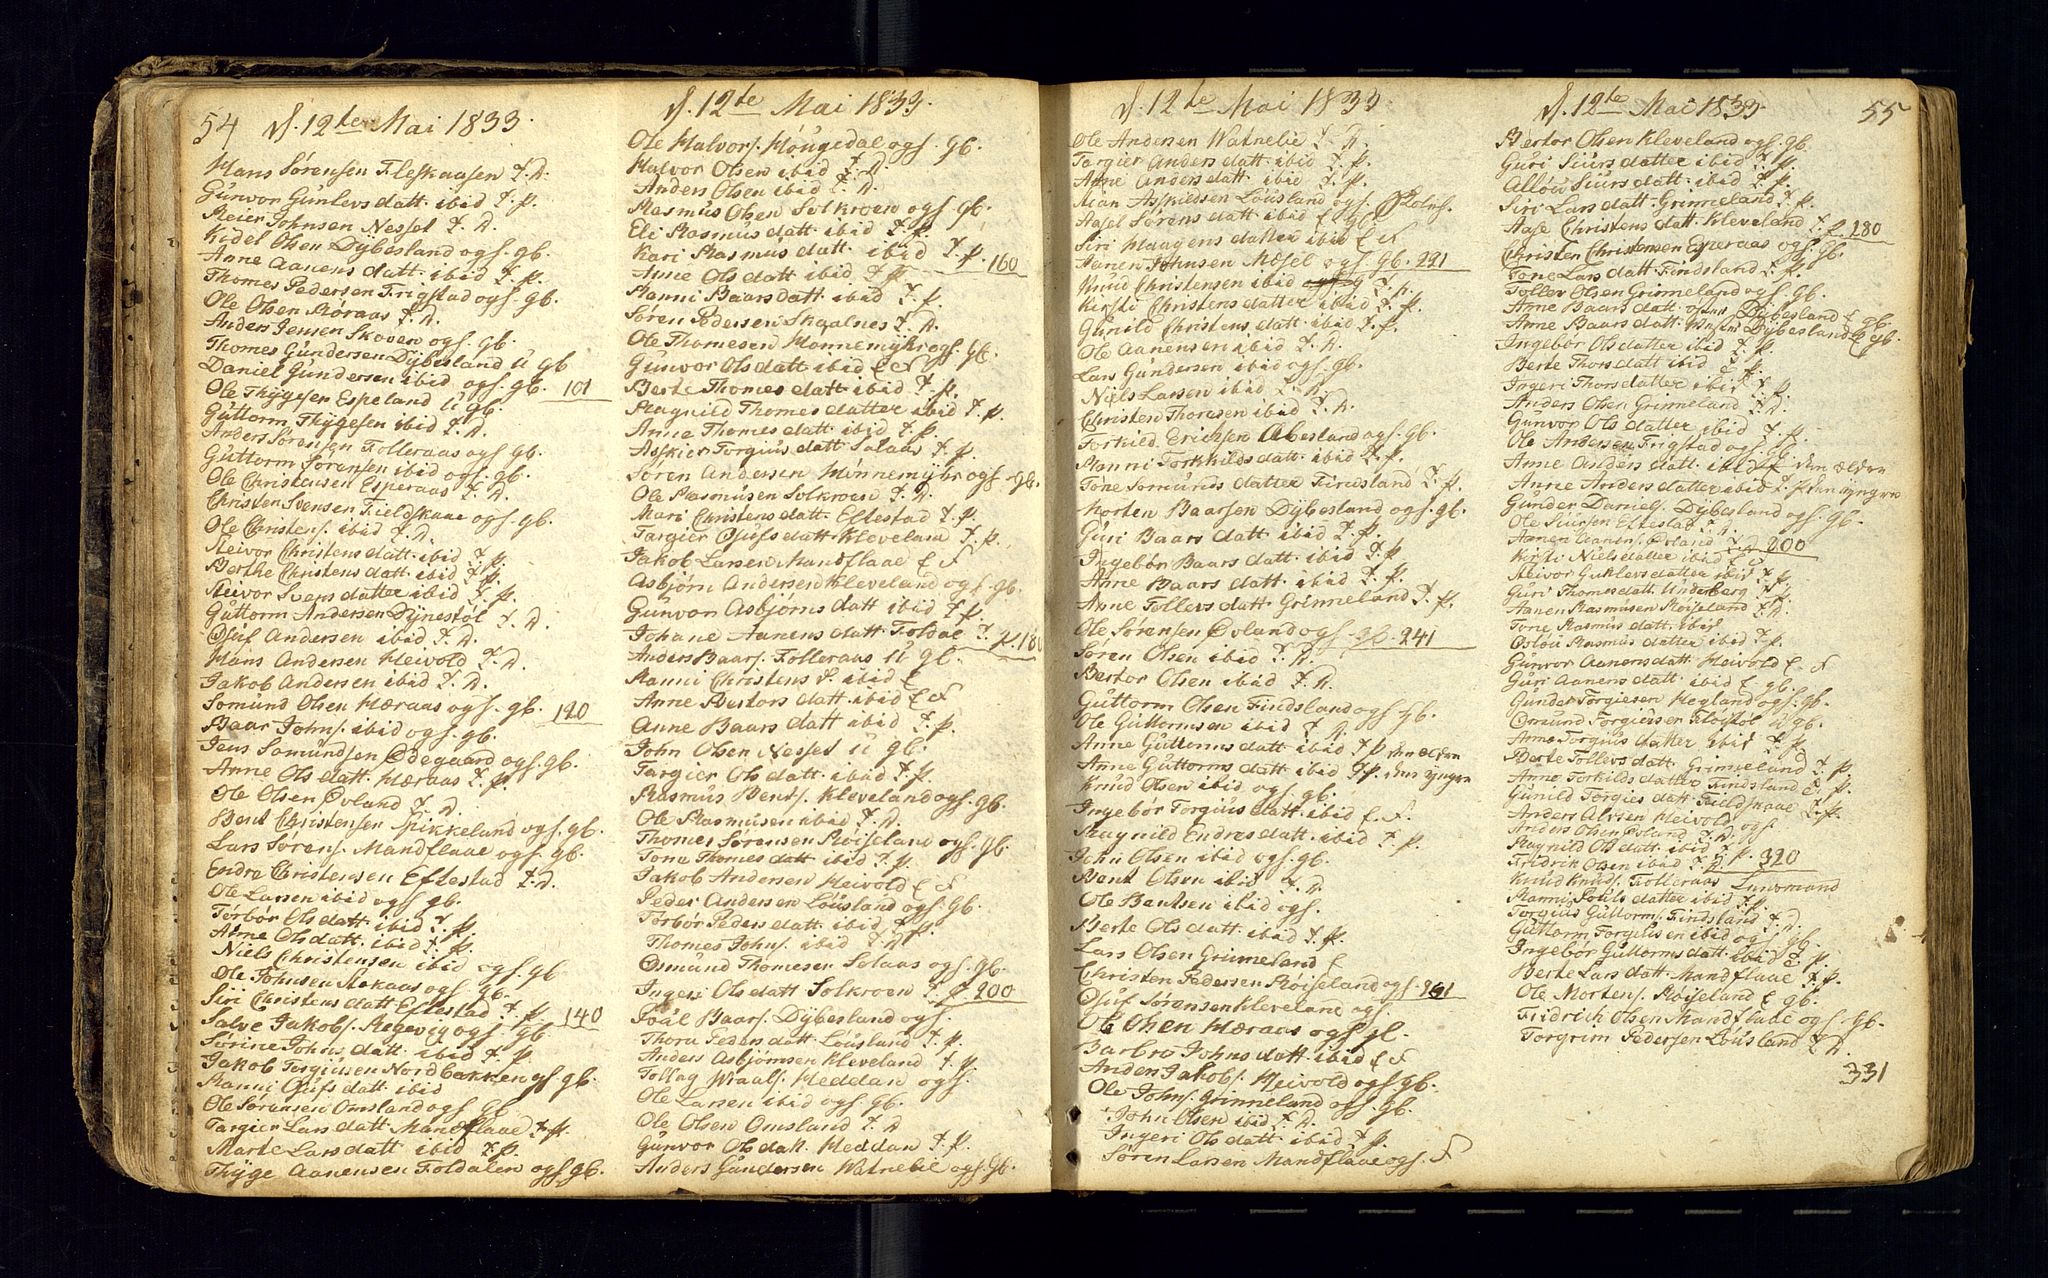 54 d. 12te Mai 1833.
Hans Sørensen Fleskaasen T. D.
Gunvor Gunlevs datt. ibid T. p.
Reier Johnsen Nessel T. D.
Kidel Olsen Dybesland ogf. gb.
Anne Aanens datt. ibid T. p.
Thomes Pedersen Frigstad ogf. gb.
Ole Olsen Røraas T. D.
Anders Jensen Skoven ogf. gb.
Thomes Gundersen Dybesland U gb
Daniel Gundersen ibid ogf. gb. 101
Ole Thygesen Espeland U gb.
Guttorm Thygesen ibid T. D.
Anders Sørensen Folleraas ogf gb.
Guttorm Sørensen ibid ogf. gb.
Ole Christensen Esperaas T. D.
Christen Svensen Fieldskaae ogf. gb.
Ole Christens. ibid T. D.
Reivor Christens datt. ibid T. p.
Berthe Christens datt. ibid T. p.
Reivor Svens datter ibid T. p.
Guttorm Andersen Dynestøl T. D.
Osuf Andersen ibid T. D.
Hans Andersen Heivold T. D.
Jakob Andersen ibid T. D.
Somund Olsen Hæraas ogf. gb. 120
Baar Johns. ibid ogf. gb.
Jens Somundsen Ødegaard ogf. gb.
Anne Ols datt. Hæraas T. p.
Ole Olsen Øvland T. D.
Bent Christensen Spikkeland ogf. gb.
Lars Sørens. Mandflaae ogf gb.
Endre Christensen Eftestad T. D.
Ole Larsen ibid ogf gb.
Torbør Ols datt. ibid T. p.
Anne Ols datt. ibid T. p.
Niels Christensen ibid ogf. gb
Ole Johnsen Stokaas ogf. gb.
Siri Christens datt Eftestad T. p. 140
Salve Jakobs. Regevig ogf. gb.
Sørine Johns datt. ibid T. p.
Jakob Torgiusen Nordbakken ogf. gb.
Ranni Osufs datt. ibid
Ole Sørensen Omsland ogf. gb.
Targier Lars datt. Mandflaae T. p.
Marte Lars datt. ibid T. p.
Thyge Aanensen Foldalen ogf gb.
d. 12te Mai 1833.
Ole Halvors. Høugedal ogf. gb.
Halvor Olsen ibid T. D.
Anders Olsen ibid T. D.
Rasmus Olsen Solkroen ogf gb.
Eli Rasmus datt. ibid T. p.
Kari Rasmus datt. ibid T. p. 160
Anne Ols datt. ibid T. p.
Ranni Baars datt. ibid T. p.
Søren Pedersen Skaalnes T. D.
Ole Thomesen Honnemyhr ogf. gb.
Gunvor Ols datt. ibid E F
Berte Thomes datt. ibid T. p.
Ragnild Thomes datter ibid T. p.
Anne Thomes datt. ibid T. p.
Asskier Torgius datt. Solaas T. p.
Søren Andersen Hønnemyhr ogf gb.
Ole Rasmusen Solkroen T. D.
Mari Christens datt. Eftestad T. p.
Targier Osufs datt. Kleveland T. p.
Jakob Larsen Mandflaae E F
Asbjørn Andersen Kleveland ogf gb.
Gunvor Asbjørns datt ibid T. p.
Johane Aanens datt. Foldal T. p. 180
Anders Baars. Folleraas U gb.
Ranni Christens d. ibid E
Anne Bertors datt. ibid E F
Anne Baars datt ibid T. p.
John Olsen Nessel U gb.
Targier Ols datt. ibid T. p.
Rasmus Bents. Kleveland ogf. gb.
Ole Rasmusen ibid T. D.
Thomes Sørensen Røiseland ogf gb.
Tone Thomes datt ibid T. p.
Jakob Andersen Heivold E F
Peder Andersen Lousland ogf. gb.
Torbør Peders datt. ibid T. p.
Thomes Johns. ibid T. D
Osmund Thomesen Solaas ogf. gb.
Ingeri Ols datt Solkroen T. p. 200
Joäl Baars. Dybesland ogf.
Thora Peders datt. Lousland T. p.
Anders Asbjørnsen Kleveland T. p
Tollag Wraals. Heddan ogf.
Ole Larsen ibid ogf. gb.
Ole Olsen Omsland T. D
Gunvor Ols datt. Heddan T. p.
Anders Gundersen Watnelie ogf. gb.
d. 12te Mai 1833
Ole Andersen Watnelie T. D.
Targier Anders datt. ibid T. p.
Anne Anders datt. ibid T. p.
Alan Asskildsen Lousland ogf.
Aasel Sørens datt. ibid E gb
Siri Haagens datter ibid E F
Aanen Johnsen Mæsel ogf. gb. 221
Knud Christensen ibid T. D.
Kirsti Christens datter ibid T. p.
Gunild Christens datt. ibid T. p.
Ole Aanensen ibid T. D.
Lars Gundersen ibid ogf. gb.
Niels Larsen ibid T. D.
Christen Thoresen ibid T. D.
Torkild Erichsen Abesland ogf. gb.
Ranni Torkilds datt. ibid T. p.
Tone Somunds datter Findsland T. p.
Morten Baarsen Dybesland ogf. gb.
Guri Baars datt ibid T. p.
Ingebør Baars datt. ibid T. p.
Anne Baars datt. ibid T. p.
Anne Tollevs datt. Grimeland T. p.
Ole Sørensen Øvland ogf. gb. 241
Søren Olsen ibid T. D.
Bertor Olsen ibid T. D.
Guttorm Olsen Findsland ogf. gb.
Ole Guttormsen ibid T. D.
Anne Guttorms datt. ibid T. p den ælden
Anne Guttorms datt. ibid T. p. den yngre
Knud Olsen ibid ogf. gb.
Ingebør Torgius datt. ibid E. F.
Ragnild Endres datt. ibid T. p.
John Olsen ibid ogf. gb.
Bent Olsen ibid T. D.
Ole Bentsen ibid ogf.
Berte Ols datt. ibid T. p.
Lars Olsen Grimeland E
Christen Pedersen Røiseland ogf. 261
Osuf Sørensen Kleveland ogf.
Ole Olsen Hæraas ogf gb.
Barbro Johns datt. ibid E F
Anden Jakobs. Heivold ogf. gb.
Ole Johns. Grimeland ogf. gb.
John Olsen ibid T. D.
Ingeri Ols datt. ibid T. p.
Søren Larsen Mandflaae ogf. F
d. 12te Mai 1833. 55
Bertor Olsen Kleveland ogf. gb.
Guri Siurs datter ibid T. p.
Allou Siurs datt. ibid T. p.
Siri Lars datt. Grimeland T. p.
Aase Christens datt. Kleveland T. p. 280
Christen Christensen Esperaas ogf. gb.
Tone Lars datt. Findsland T. p.
Tollev Olsen Grimeland ogf. gb.
Anne Baars datt. Dybesland E gb.
Anne Baars datt. Dybesland E gb.
Ingebør Ols datter ibid T. p.
Berte Thors datt. ibid T. p.
Ingeri Thors datter ibid T. p.
Anders Olsen Grimeland T. D.
Gunvor Ols datter ibid T. p.
Ole Andersen Frigstad ogf. gb.
Anne Anders datt. ibid den ælden
Anne Anders datter ibid T. p den yngre
Gunder Daniels. Dybesland ogf. gb.
Ole Siursen Eftestad T. D.
Aanen Aanens. Øvland T. D 200
Kirsti Niels datter ibid E F
Reivor Guttlevs datter ibid T. p.
Guri Thomes datt. Underberg T. p.
Aanen Rasmusen Røiseland T. D.
Tone Rasmus datt. ibid
Oslou Rasmus datter ibid T. p.
Gunvor Aanens datt. Heivold E F
Guri Aanens datt. ibid E gb.
Gunder Torgiesen Hegland ogf. gb.
Osmund Torgiusen Røistøl U gb.
Anne Torgius datter ibid T. p.
Berte Tollevs datt. Grimeland T. p.
Anne Torkilds datter Findsland E. p.
Gunild Torgies datt. Fieldskaae T. p.
Anders Alvsen Heivold ogf.
Anders Olsen Øvland T. D.
Ragnild Ols datt. ibid T. p. 320
Fridrik Olsen ibid T. D
Knud Knuds. Folleraas Lensmand
Ranni Pouls datter ibid T. p.
Torgius Guttorms. Findsland T. D.
Guttorm Torgiusen ibid ogf. gb.
Ingebør Guttorms datt. ibid E. p.
Berte Lars datt. Mandflaae T. p.
Ole Mortens. Røiseland E gb.
Fridrich Olsen Mandflaae ogf. gb.
Torgrim Pedersen Lousland T. D.
331